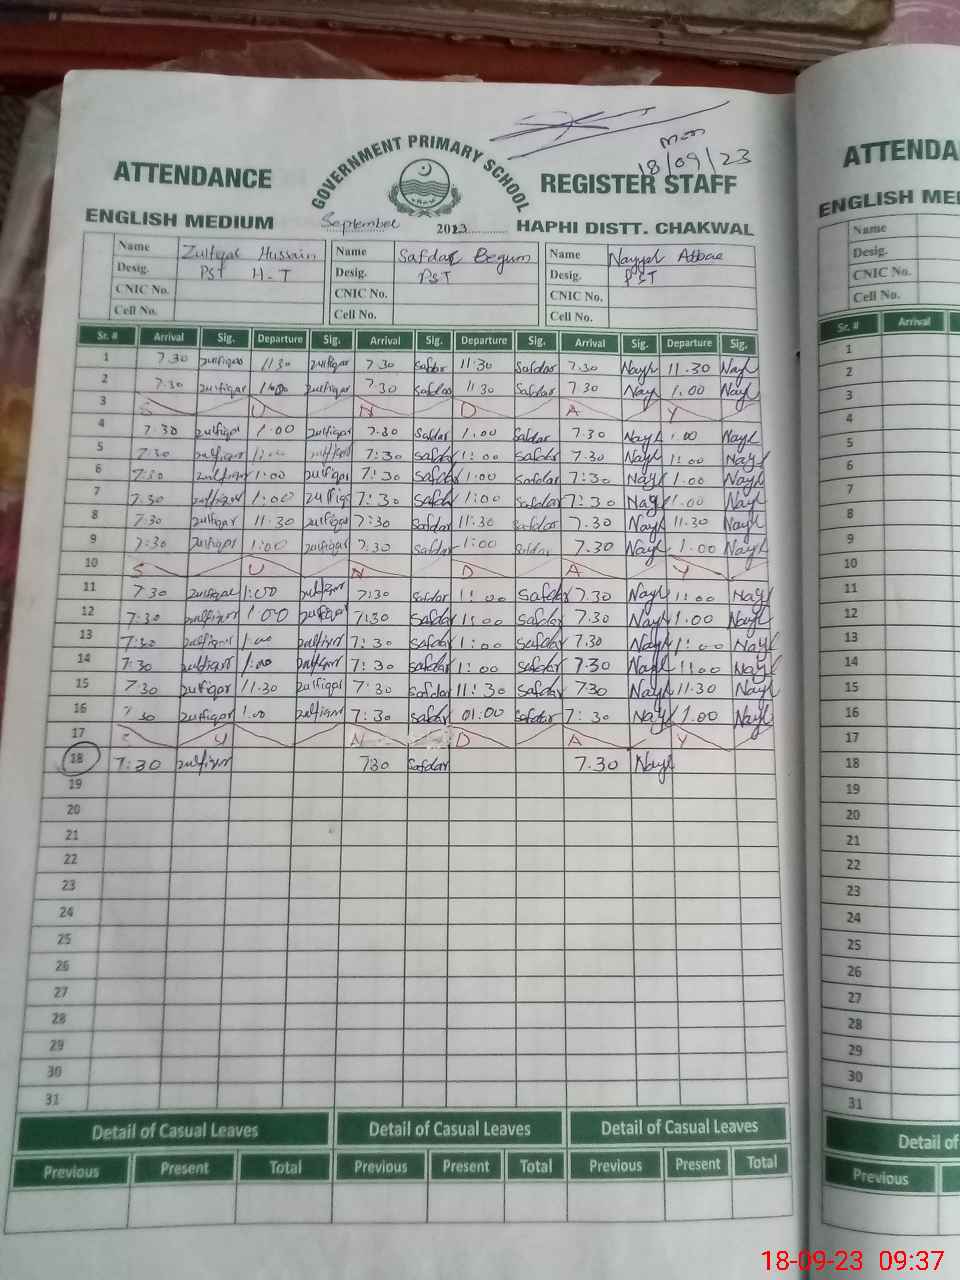 Mon
18/09/23
GOVERNMENT PRIMARY SCHOOL
ATTENDANCE REGISTER STAFF
ENGLISH MEDIUM September 2023 HAPHI DISTT. CHAKWAL
Name Zulfiqar Hussain Name Safdar Begum Name Nayyel Abbae
Desig. PST H-T Desig. PST Desig. PST
CNIC No. CNIC No. CNIC No.
Cell No. Cell No. Cell No.
Sr. # Arrival Sig. Departure Sig. Arrival Sig. Departure Sig. Arrival Sig. Departure Sig.
1 7.30 zulfiqar 11.30 zulfiqar 7.30 Safdar 11:30 Safdar 7.30 Nayl 11.30 Nayl
2 7.30 zulfiqar zulfiqar 7.30 Safdar 11.30 Safdar 7.30 Nayl 1.00 Nayl
3 S U N D A Y
4 7.30 zulfiqar 1.00 zulfiqar 7.30 Safdar 1.00 Safdar 7.30 Nayl 1.00 Nayl
5 7:30 zulfiqar 1:00 zulfiqar 7:30 Safdar 1:00 Safdar 7.30 Nayl 1:00 Nayl
6 7:30 zulfiqar 1:00 zulfiqar 7:30 Safdar 1:00 Safdar 7:30 Nayl 1.00 Nayl
7 7:30 zulfiqar 1:00 zulfiqar 7:30 Safdar 1:00 Safdar 7:30 Nayl 1.00 Nayl
8 7:30 zulfiqar 11.30 zulfiqar 7:30 Safdar 11.30 Safdar 7.30 Nayl 11.30 Nayl
9 7:30 zulfiqar 1:00 zulfiqar 7:30 Safdar 1:00 Safdar 7.30 Nayl 1.00 Nayl
10 S U N D A Y
11 7.30 zulfiqar 1:00 zulfiqar 7:30 Safdar 1:00 Safdar 7.30 Nayl 11:00 Nayl
12 7:30 zulfiqar 1:00 zulfiqar 7:30 Safdar 11:00 Safdar 7.30 Nayl 1.00 Nayl
13 7:30 zulfiqar 1:00 zulfiqar 7:30 Safdar 1:00 Safdar 7.30 Nayl 1:00 Nayl
14 7:30 zulfiqar 1:00 zulfiqar 7:30 Safdar 1:00 Safdar 7.30 Nayl 11:00 Nayl
15 7:30 zulfiqar 11.30 zulfiqar 7:30 Safdar 11:30 Safdar 730 Nayl 11.30 Nayl
16 7:30 zulfiqar 1:00 zulfiqar 7:30 Safdar 01:00 Safdar 7:30 Nayl 1.00 Nayl
17 S U N D A Y
18 7:30 zulfiqar 730 Safdar 7.30 Nayl
19
20
21
22
23
24
25
26
27
28
29
30
31
Detail of Casual Leaves Detail of Casual Leaves Detail of Casual Leaves
Previous Present Total Previous Present Total Previous Present Total
ATTENDA
ENGLISH ME
Name
Desig.
CNIC No.
Cell No.
Sr. # Arrival
1
2
3
4
5
6
7
8
9
10
11
12
13
14
15
16
17
18
19
20
21
22
23
24
25
26
27
28
29
30
31
Detail of
Previous
18-09-23 09:37